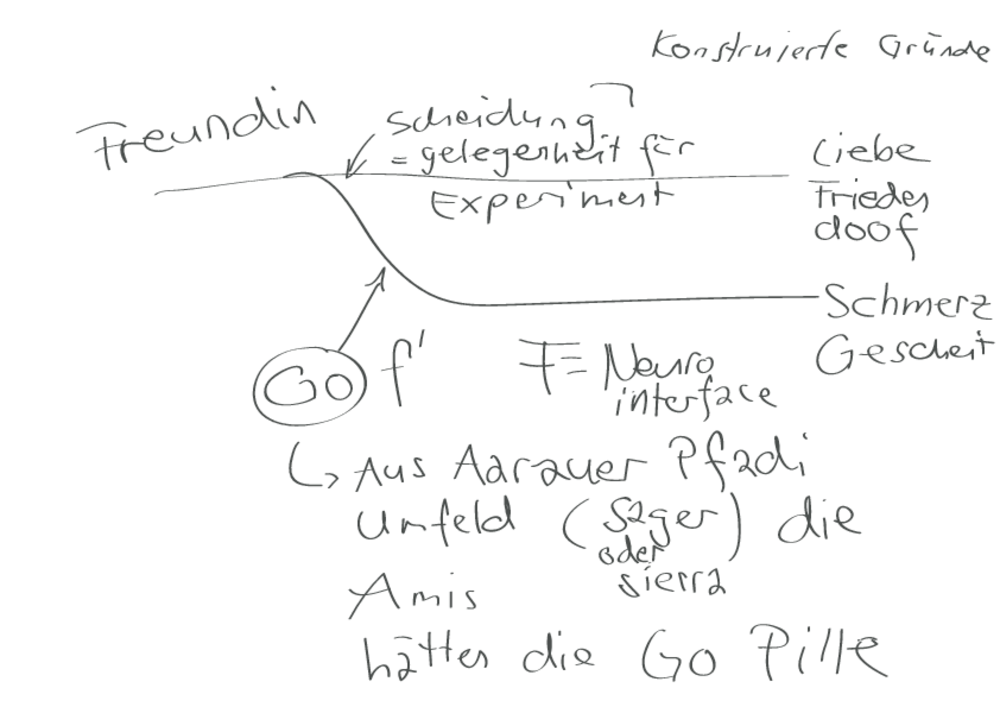 Konstruierte Gründe
Freundin
Scheidung
= gelegenheit für
Experiment
Liebe
Frieden
doof
Schmerz
Gescheit
Go f' F = Neuro
interface
↳ Aus Aarauer Pfadi
Umfeld (Säger) die
oder
sierra
Amis
hätten die Go Pille